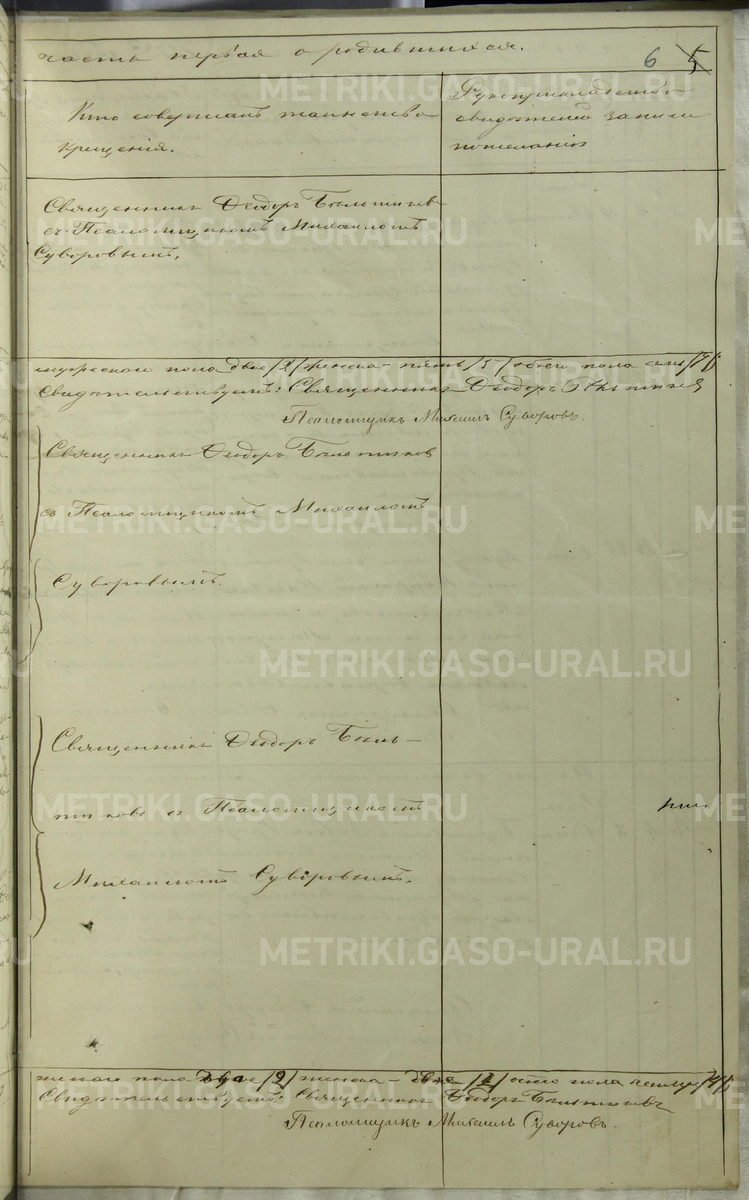 часть первая о родившихся.
6 5
Кто совершалъ таинство
крещенія.
Рукоприкладство
свидѣтелей записи
по желанію
Священникъ Ѳеодоръ
съ Псаломщикомъ Михаиломъ
Суворовымъ.
мужеска пола двое /2/ женска – пять /5/ обоего пола семь /7/
Свидѣтельствуетъ: Священникъ Ѳеодоръ
Псаломщикъ Михаилъ Суворовъ.
Священникъ Ѳеодоръ
съ Псаломщикомъ Михаиломъ
Суворовымъ.
Священникъ Ѳеодоръ
съ Псаломщикомъ
Михаиломъ Суворовымъ.
пола двое /2/ женска – двое /2/ обоего пола четыре /4/
Свидѣтельствуетъ: Священникъ Ѳеодоръ
Псаломщикъ Михаилъ Суворовъ.
METRIKI.GASO-URAL.RU
METRIKI.GASO-URAL.RU
METRIKI.GASO-URAL.RU
METRIKI.GASO-URAL.RU
METRIKI.GASO-URAL.RU
METRIKI.GASO-URAL.RU
METRIKI.GASO-URAL.RU
METRIKI.GASO-URAL.RU